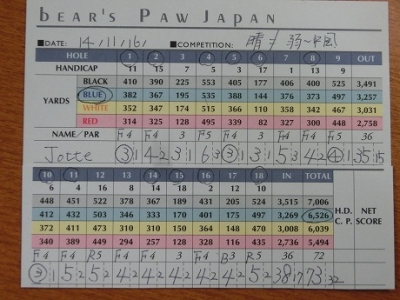 bear's Paw Japan
■DATE: 14/11/16/ ■COMPETITION: 晴れ 弱〜中風
HOLE 1 2 3 4 5 6 7 8 9 OUT
HANDICAP 11 15 7 5 3 17 1 13 9
BLACK 410 390 225 553 405 177 406 400 525 3,491
YARDS BLUE 382 367 195 535 388 144 376 373 497 3,257
WHITE 352 347 174 515 366 110 358 342 467 3,031
RED 314 325 128 495 339 82 327 300 448 2,758
NAME/PAR F4 F4 3 F5 F4 3 F4 F4 F5 36
Jotte ③1 42 31 63 ③1 31 53 42 ④1 35 15
10 11 12 13 14 15 16 17 18 IN TOTAL
6 4 18 8 14 16 2 12 10
448 451 522 378 367 189 431 205 524 3,515 7,006
412 432 503 346 333 170 401 175 497 3,269 6,526 H.D. NET
372 411 473 310 310 150 366 140 476 3,008 6,039 C.P. SCORE
340 389 449 294 257 128 328 115 436 2,736 5,494
F4 F4 R5 F4 F4 3 F4 B3 R5 36 72
③1 52 52 42 42 42 42 42 52 38 17 73 32